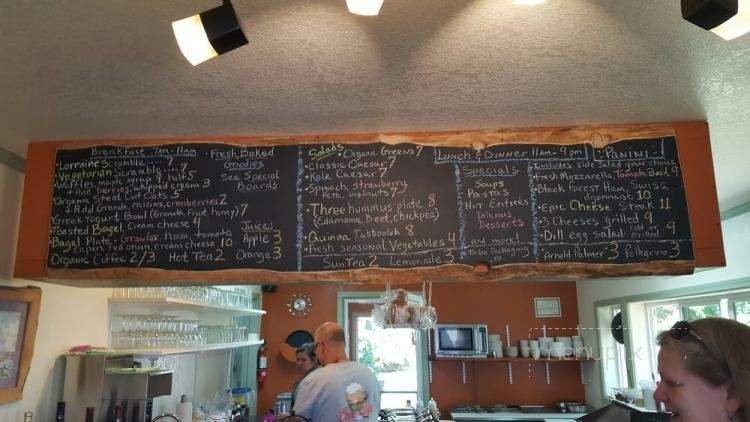 Breakfast 7am-11am
Lorraine Scramble .... 7
Vegetarian Scramble 7
Waffles, maple syrup 8, half 5
Add berries, whipped cream 3
Organic Steel Cut Oats 5
Add Granola, raisins, cranberries 2
Greek Yogurt Bowl (Granola, Fruit, honey) 7
Toasted Bagel, Cream cheese 4
Bagel Plate - Gravlox, ham, tomato
capers, red onion, cream cheese 10
Organic Coffee 2/3 Hot Tea 2
Fresh, Baked
Goodies
See Special
Boards
Juice:
Apple 3
Orange 3
Salads
Organic Greens 7
Classic Caesar 7
Kale Caesar 7
Spinach, strawberry
feta, walnuts 7
Three hummus plate 8
(Edamame, Beet, chickpea)
Quinoa Tabbouleh 8
fresh seasonal Vegetables 4
Sun Tea 2 Lemonade 3
Lunch & Dinner 11am-9pm
Specials
Soups
Pastas
Hot Entrées
Delicious
Desserts
and more!
To Go Packaging
Panini
Includes side salad your choice
Fresh Mozzarella, Tomato, Basil 9
Black Forest Ham, Swiss,
Dijonnaise 10
Epic Cheese Steak 11
3 Cheeses grilled 9
Dill egg salad cold or grilled 9
Arnold Palmer 3 Pellegrino 3